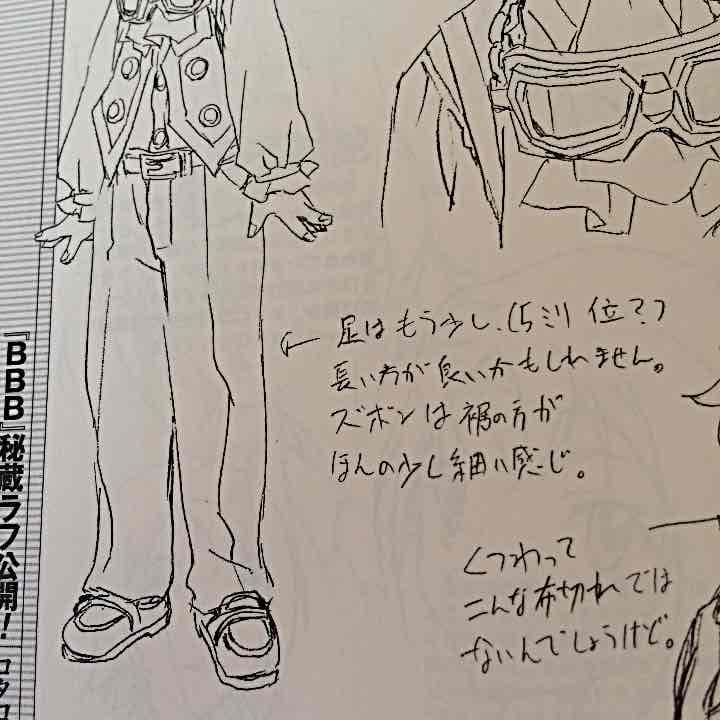 足はもう少し、(5ミリ位？)
長い方が良いかもしれません。
ズボンは裾の方が
ほんの少し細い感じ。
くつわって
こんな布切れでは
ないんでしょうけど。
『BBB』秘蔵ラフ公開！